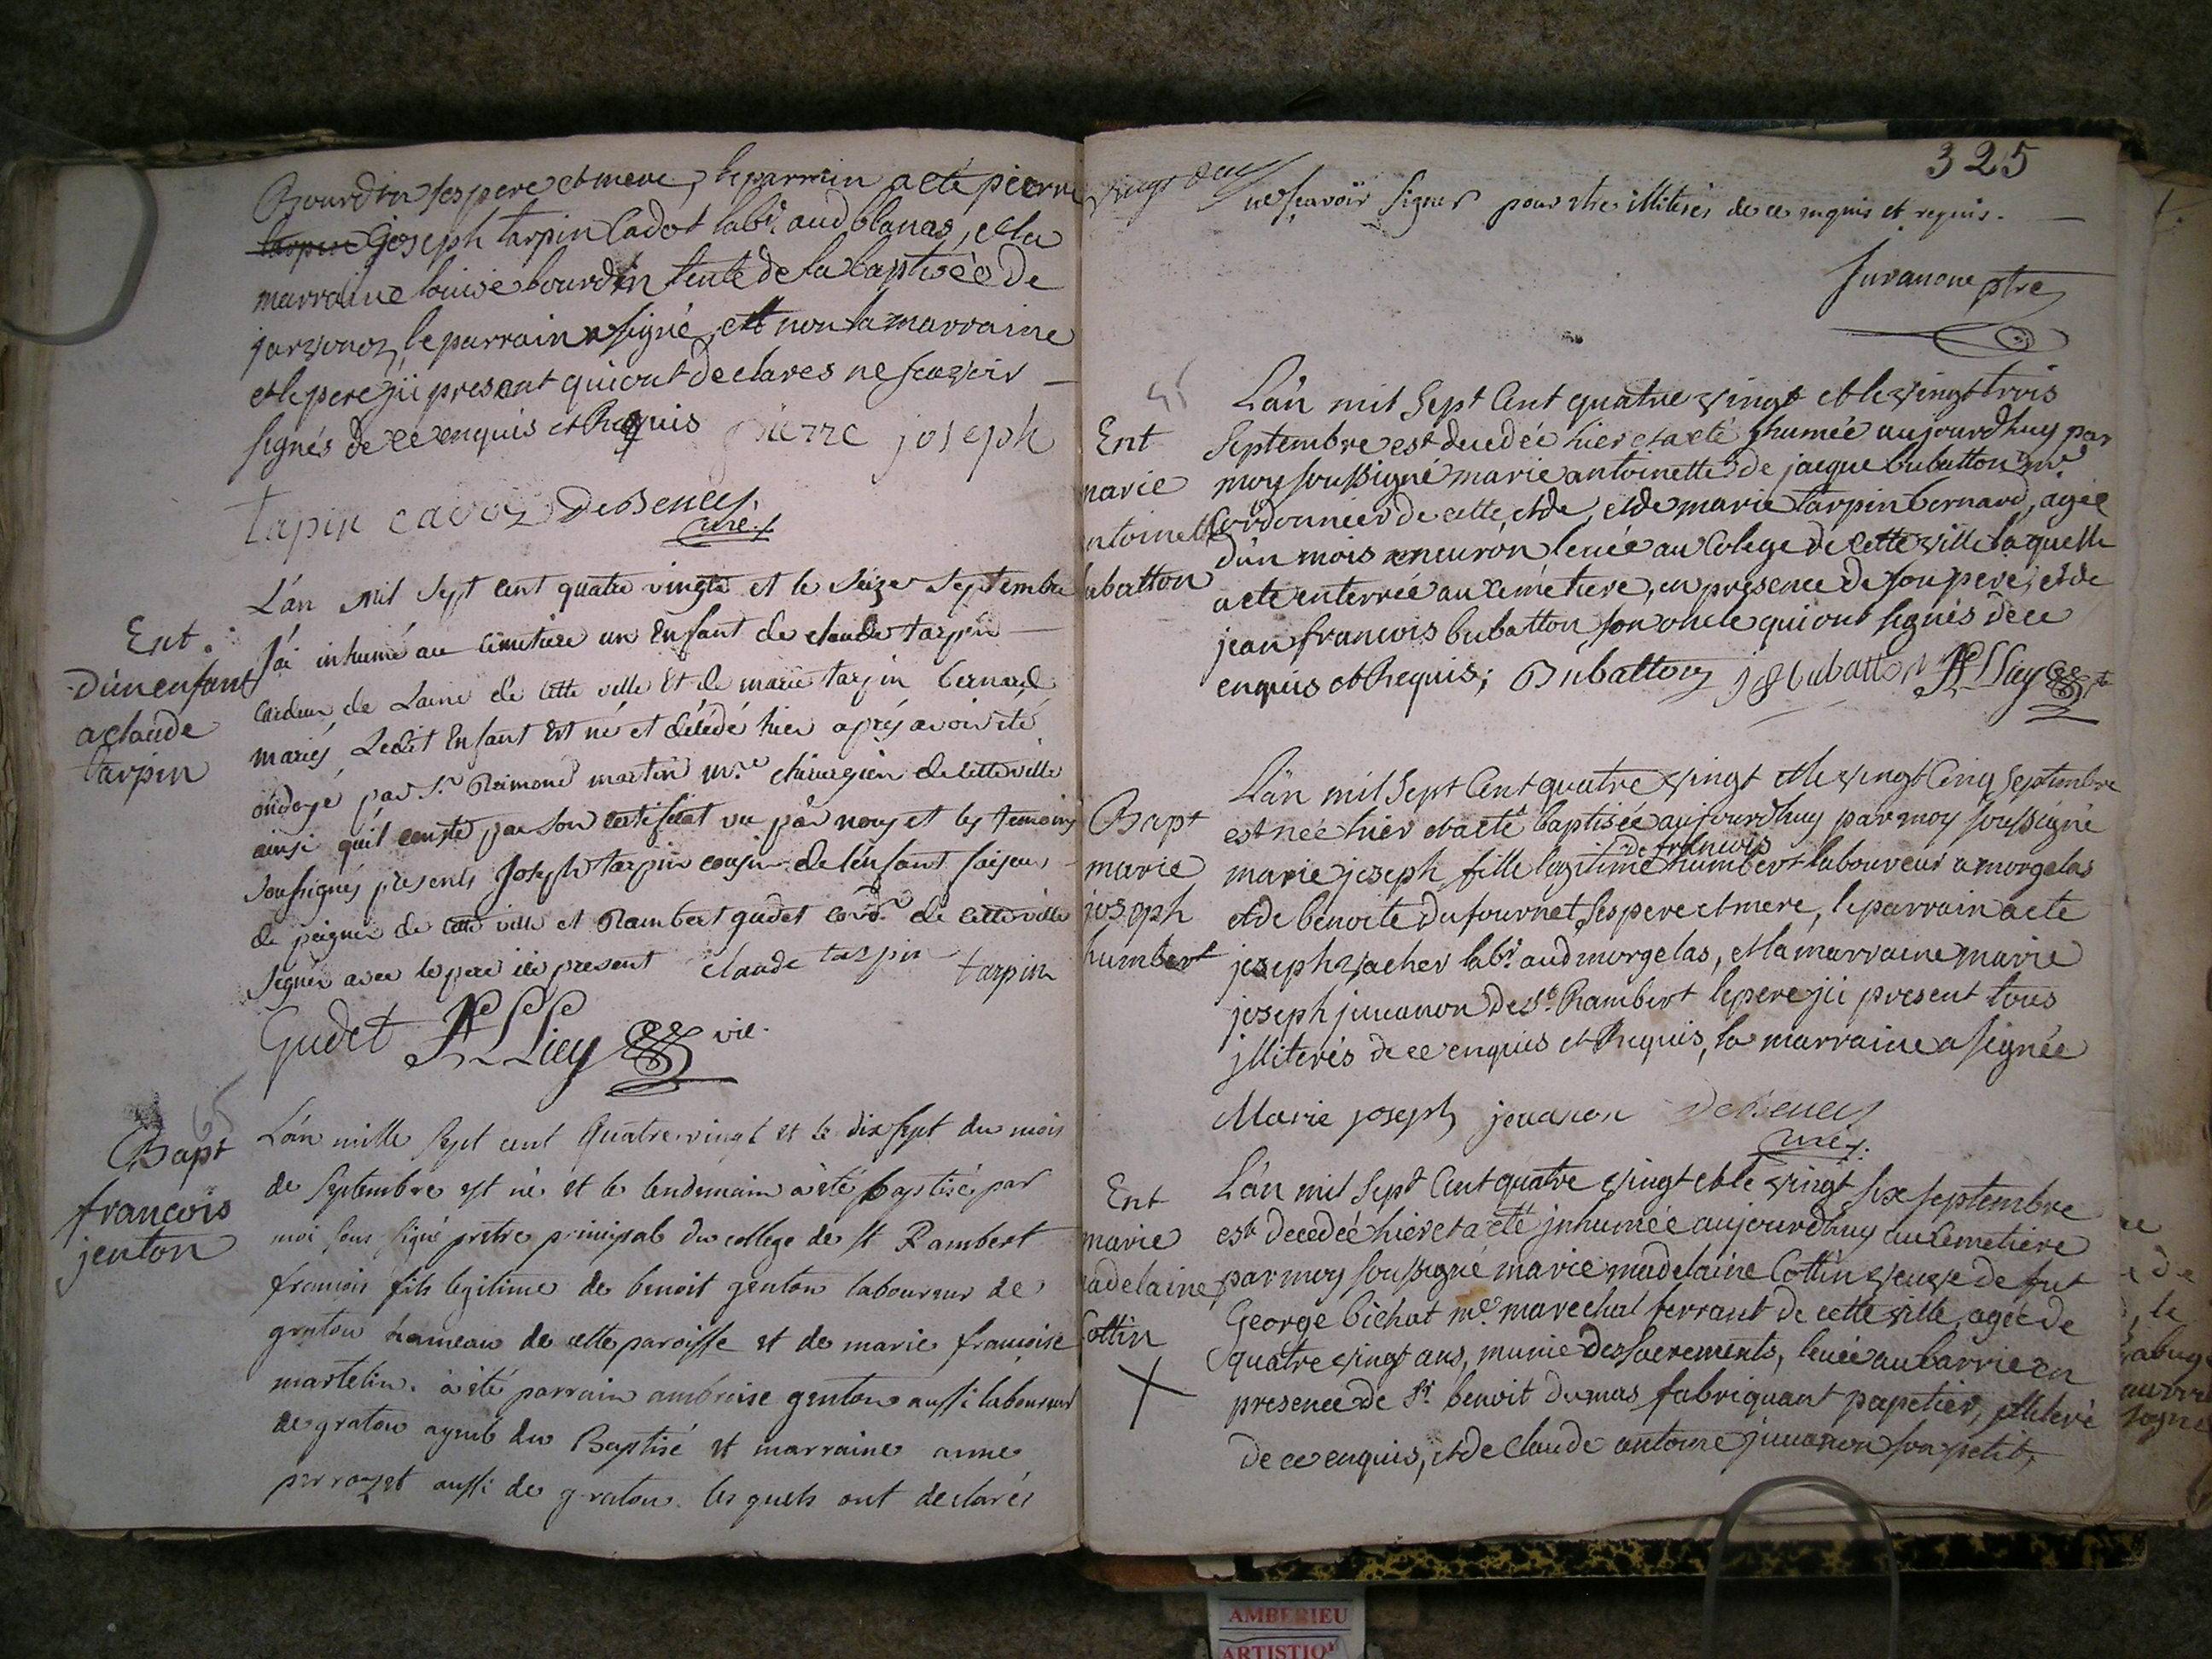 Bourdin ses pere et mere, le parrain a eté pierre
tarpin joseph tarpin Cadot lab.r aud blanas, et la
marraine louise bourdin tente de la baptisée de
le parrain a signé, et non la marraine
et le pere ÿci present qui ont declares ne scavoir
signés de ce enquis et Requis pierre joseph
tapin cadoz Debeney
curé
Ent.
D'un enfant
a claude
tarpin
L'an mil sept cent quatre vingts et le seize septembre
J'ai inhumé au cimetiere un Enfant de claude tarpin
cardeur de Laine de cette ville Et de marie tarpin bernard
mariés, Ledit Enfant Est né et décédé hier après avoir eté
ondoyé par S.r Reimond martin m.re chirurgien de cette ville
ainsi qu'il conste par son certificat vu par nous et les temoins
Soussignés présents Joseph tarpin cousin de l'enfant faiseur
de peignes de cette ville et Rambert gudet cord.r de cette ville
signés avec le pere ici present claude tarpin tarpin
Gudet vic.
65
Bapt
francois
jenton
L'an mille sept cent Quatre vingt et le dix sept du mois
de septembre est né et le lendemain à été baptisé par
moi sous signé prêtre principal du college de st Rambert
francois fils legitime de benoit genton laboureur de
graton hameau de cette paroisse et de marie francoise
martelin. à été parrain ambroise genton aussi laboureur
de graton ayeul du Baptisé et marraine anne
perrozet aussi de graton. les quels ont declarés
325
vingt deux
ne sçavoir signer pour etre illiterés de ce enquis et requis.
Juvanon ptre
45
Ent
marie
antoinette
bubatton
L'an mil Sept Cent quatre vingt et le vingt trois
Septembre est decedée hier et a eté jnhumée aujourdhuy par
moy soussigné marie antoinette de jacque bubatton m.e
Cordonnier de cette, et de, et de marie tarpin bernard, agée
d'un mois anneuron levée au Colege de cette ville laquelle
a eté enterrée au cimetiere, en présence de son pere, et de
jean francois bubatton son oncle qui ont signés de ce
enquis et Requis; Bubatton j f bubatton
Bapt
marie
joseph
humbert
L'an mil Sept Cent quatre vingt et le vingt Cinq Septembre
est née hier et a eté baptisée aujourdhuy par moy soussigné
de francois
marie joseph fille legitime humbert laboureur a morgelas
et de benoite Dufournet ses pere et mere, le parrain a eté
joseph vacher lab.r aud morgelas, et la marraine marie
joseph juvanon de S.t Rambert le pere ÿci present tous
jlliterés de ce enquis et Requis, la marraine a signée
Marie joseph jeuanon Debeney
curé
Ent
marie
madelaine
Cottin
X
L'an mil Sept Cent quatre vingt et le vingt six septembre
est decedée hier et a eté jnhumée aujourdhuy au Cemetiere
par moy soussigné marie madelaine Cottin veuve de fut
George bichat m.e marechal ferrant de cette ville, agée de
quatre vingt ans, munie des sacrements, levée au barrie en
presence de S.r benoit dumas fabriquant papetier, jlliteré
de ce enquis, et de Claude antoine juvanon son petit,
AMBERIEU
ARTISTIQ